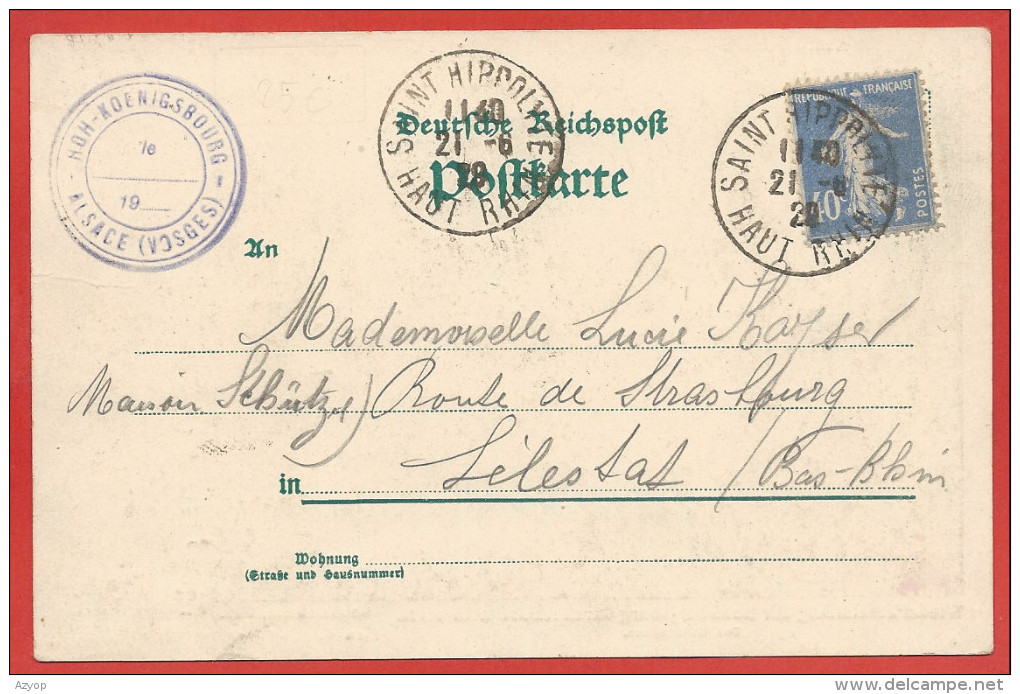 HOH-KOENIGSBOURG
le
19
ALSACE (VOSGES)
SAINT HIPPOLYTE
11 40
21 -6
28
HAUT RHIN
Deutsche Reichspost
Postkarte
REPUBLIQUE FRANÇAISE
40
POSTES
SAINT HIPPOLYTE
11 40
21 -6
HAUT RHIN
An
Mademoiselle Lucie Kayser
Maison Schützel) Route de Strasbourg
in Sélestat / Bas-Rhin
Wohnung
(Straße und Hausnummer)
Azyop
www.delcampe.net